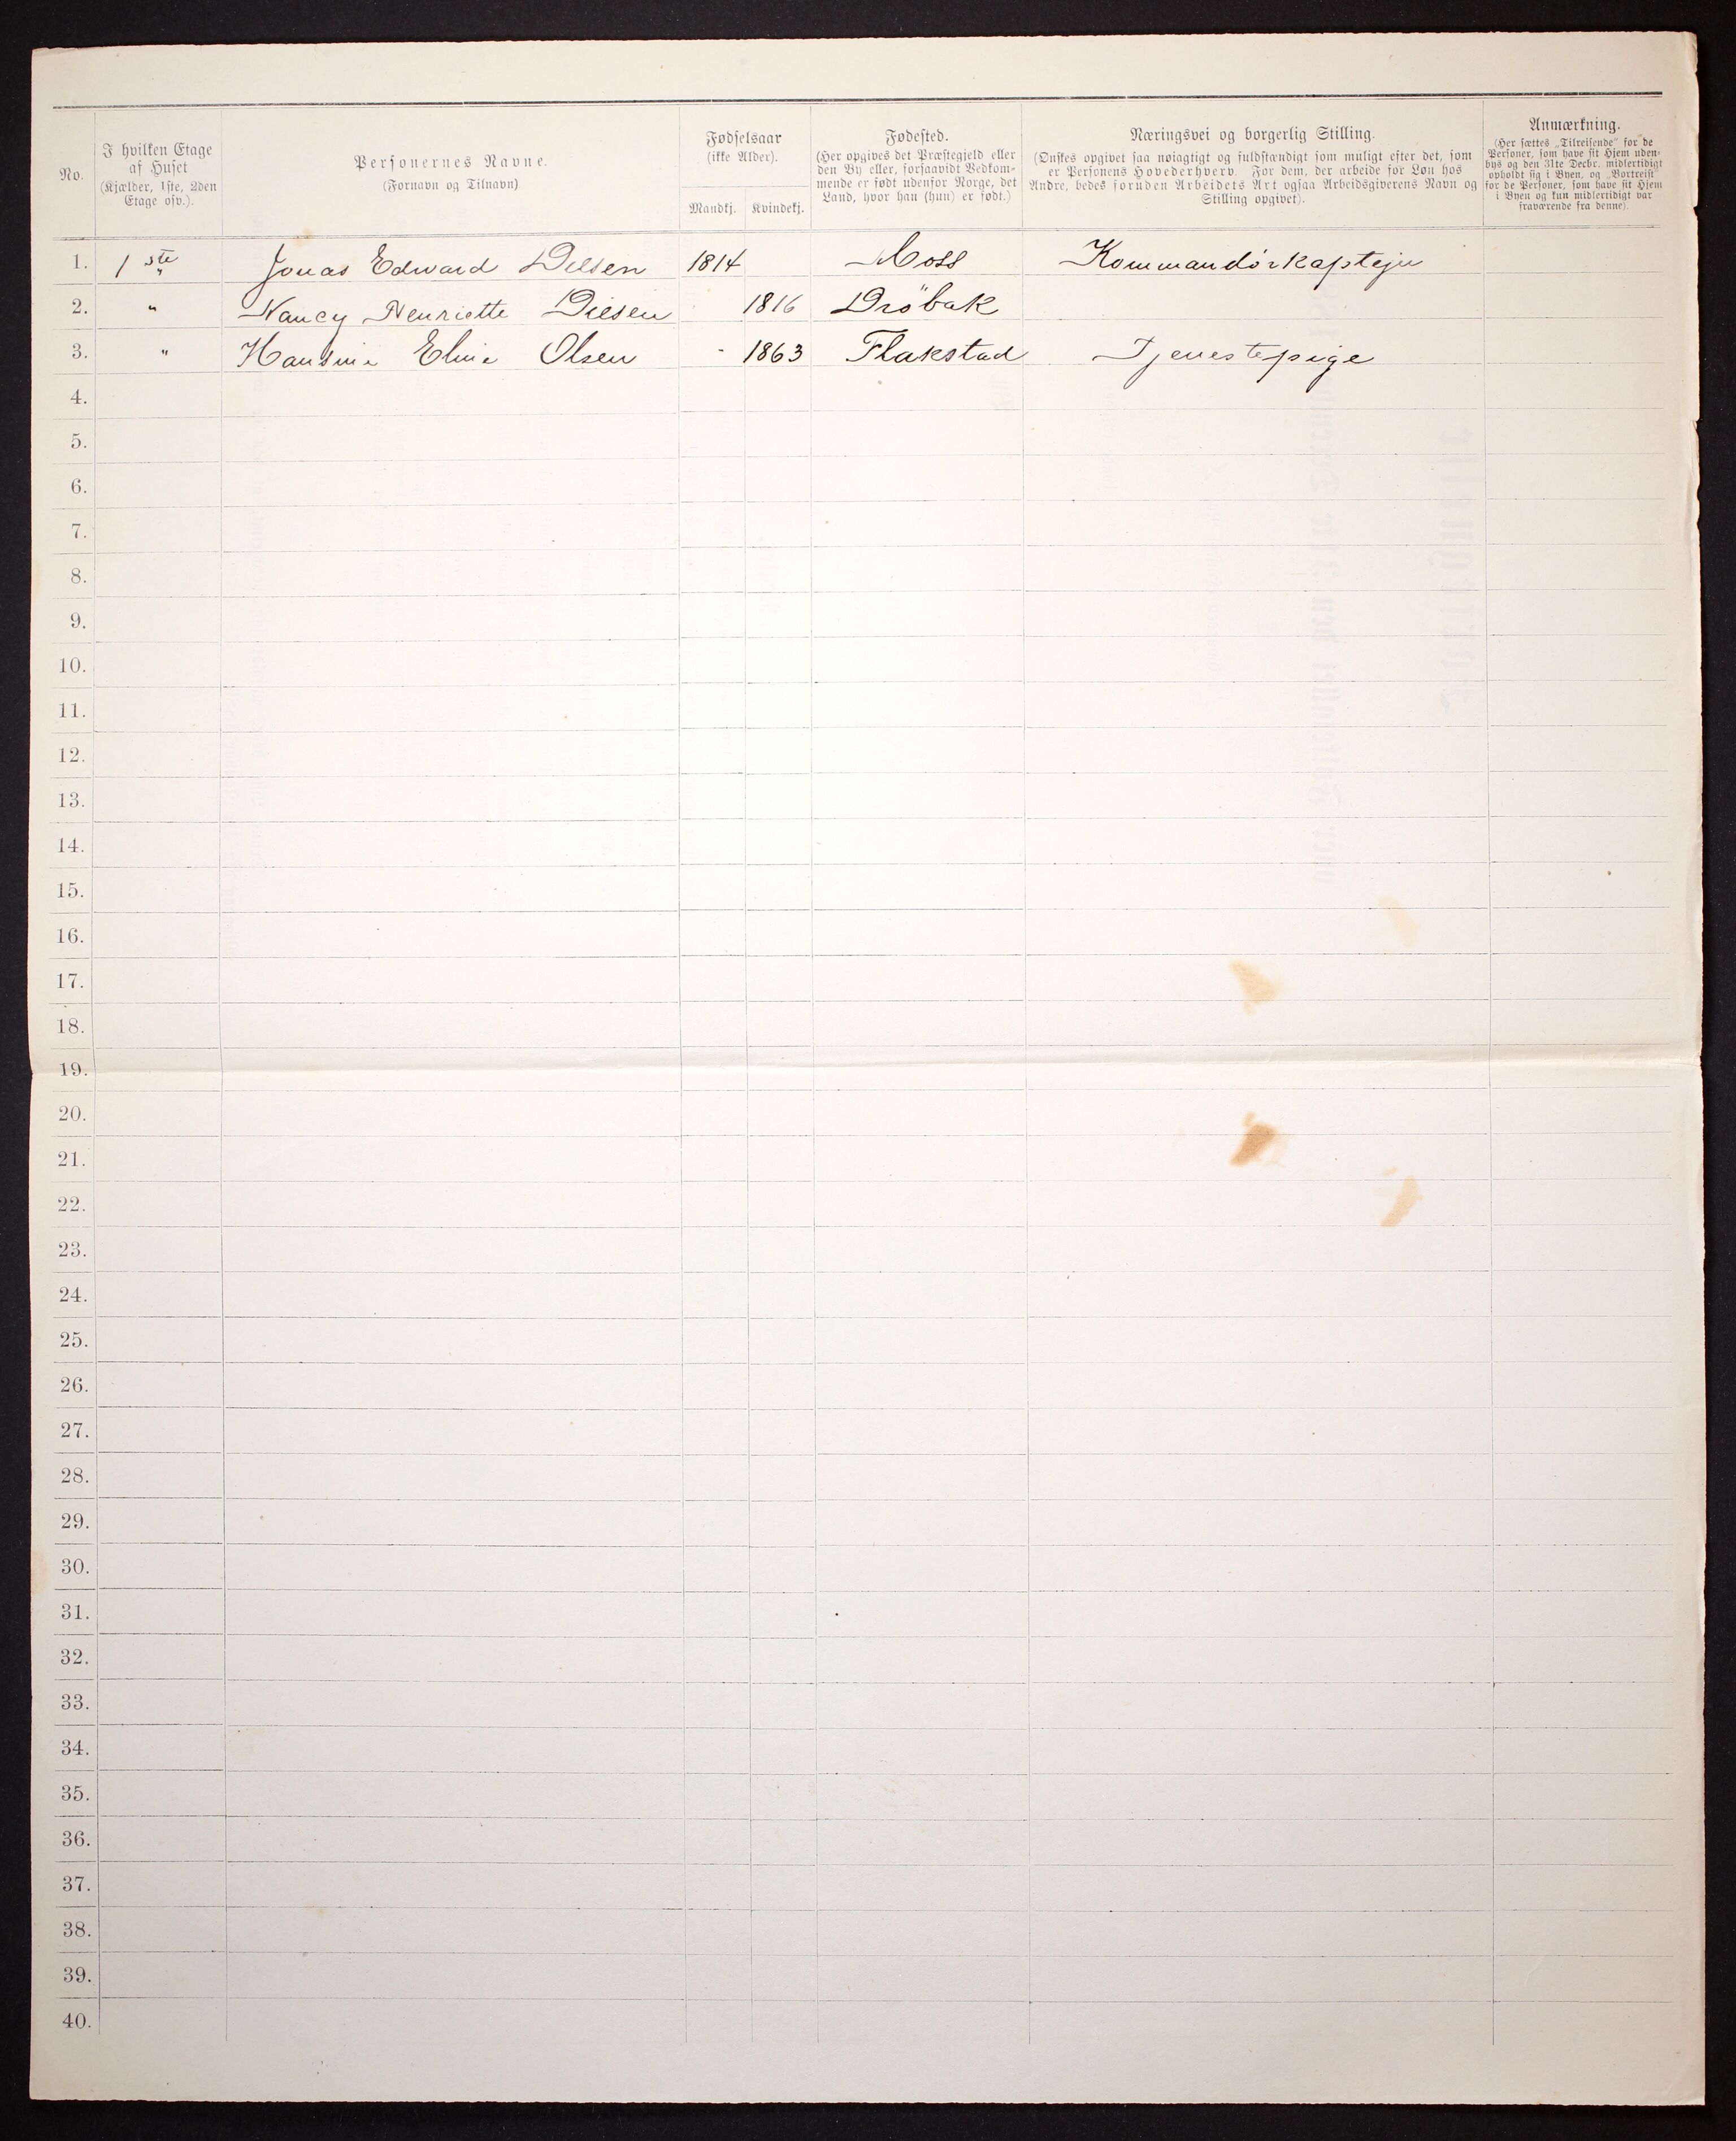 No.
I hvilken Etage
af Huset
(Kjælder, 1ste, 2den
Etage osv.).
Personernes Navne.
(Fornavn og Tilnavn)
Fødselsaar
(ikke Alder).
Mandkj. Kvindekj.
Fødested.
(Her opgives det Præstegjeld eller
den By eller, forsaavidt Vedkom-
mende er født udenfor Norge, det
Land, hvor han (hun) er født.)
Næringsvei og borgerlig Stilling.
(Ønskes opgivet saa nøiagtigt og fuldstændigt som muligt efter det, som
er Personens Hovederhverv. For dem, der arbeide for Løn hos
Andre, bedes foruden Arbeidets Art ogsaa Arbeidsgiverens Navn og
Stilling opgivet).
Anmærkning.
(Her sættes „Tilreisende“ for de
Personer, som have sit Hjem uden-
bys og den 31te Decbr. midlertidigt
opholdt sig i Byen, og „Bortreist“
for de Personer, som have sit Hjem
i Byen og kun midlertidigt var
fraværende fra denne).
1. 1 ste " Jonas Edward Diesen 1814 Moss Kommandörkaptejn
2. " Nancy Henriette Diesen 1816 Dröbak
3. " Hansine Eline Olsen - 1863 Flakstad Tjenestepige
4.
5.
6.
7.
8.
9.
10.
11.
12.
13.
14.
15.
16.
17.
18.
19.
20.
21.
22.
23.
24.
25.
26.
27.
28.
29.
30.
31.
32.
33.
34.
35.
36.
37.
38.
39.
40.